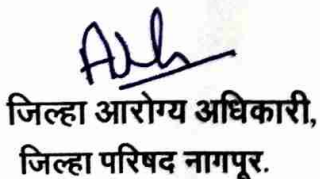 जिल्हा आरोग्य अधिकारी,
जिल्हा परिषद नागपूर.